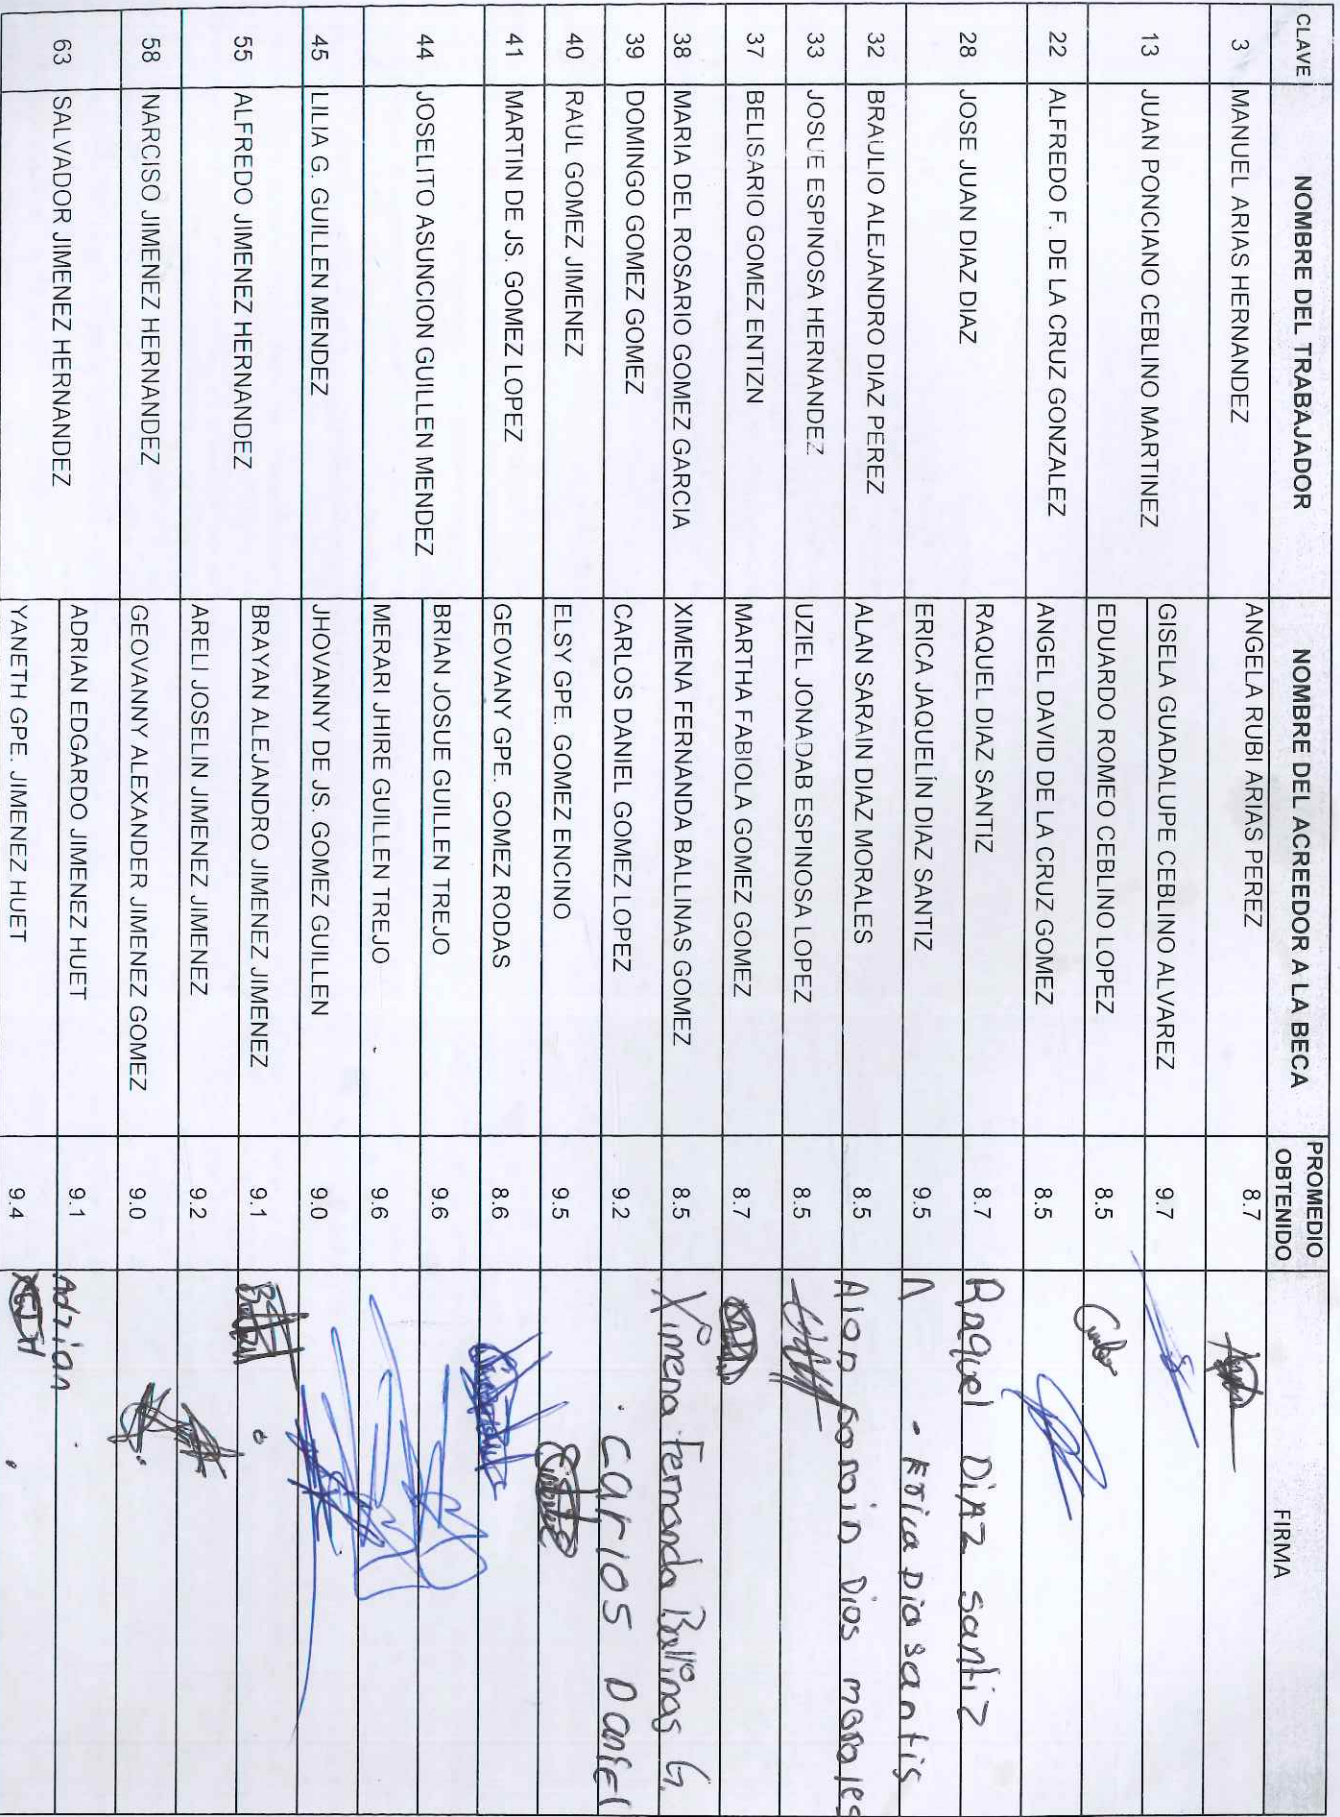 CLAVE NOMBRE DEL TRABAJADOR NOMBRE DEL ACREEDOR A LA BECA PROMEDIO OBTENIDO FIRMA
3 MANUEL ARIAS HERNANDEZ ANGELA RUBI ARIAS PEREZ 8.7
13 JUAN PONCIANO CEBLINO MARTINEZ GISELA GUADALUPE CEBLINO ALVAREZ 9.7
EDUARDO ROMEO CEBLINO LOPEZ 8.5
22 ALFREDO F. DE LA CRUZ GONZALEZ ANGEL DAVID DE LA CRUZ GOMEZ 8.5
28 JOSE JUAN DIAZ DIAZ RAQUEL DIAZ SANTIZ 8.7 Raquel DiAZ santiz
ERICA JAQUELÍN DIAZ SANTIZ 9.5 Erica Dia santis
32 BRAULIO ALEJANDRO DIAZ PEREZ ALAN SARAIN DIAZ MORALES 8.5 Alan sarain Dias morales
33 JOSUE ESPINOSA HERNANDEZ UZIEL JONADAB ESPINOSA LOPEZ 8.5
37 BELISARIO GOMEZ ENTIZN MARTHA FABIOLA GOMEZ GOMEZ 8.7
38 MARIA DEL ROSARIO GOMEZ GARCIA XIMENA FERNANDA BALLINAS GOMEZ 8.5 Ximena Fernanda Ballinas G.
39 DOMINGO GOMEZ GOMEZ CARLOS DANIEL GOMEZ LOPEZ 9.2 carlos Daniel
40 RAUL GOMEZ JIMENEZ ELSY GPE. GOMEZ ENCINO 9.5
41 MARTIN DE JS. GOMEZ LOPEZ GEOVANY GPE. GOMEZ RODAS 8.6
44 JOSELITO ASUNCION GUILLEN MENDEZ BRIAN JOSUE GUILLEN TREJO 9.6
MERARI JHIRE GUILLEN TREJO 9.6
45 LILIA G. GUILLEN MENDEZ JHOVANNY DE JS. GOMEZ GUILLEN 9.0
55 ALFREDO JIMENEZ HERNANDEZ BRAYAN ALEJANDRO JIMENEZ JIMENEZ 9.1
ARELI JOSELIN JIMENEZ JIMENEZ 9.2
58 NARCISO JIMENEZ HERNANDEZ GEOVANNY ALEXANDER JIMENEZ GOMEZ 9.0
63 SALVADOR JIMENEZ HERNANDEZ ADRIAN EDGARDO JIMENEZ HUET 9.1 Adrian
YANETH GPE. JIMENEZ HUET 9.4